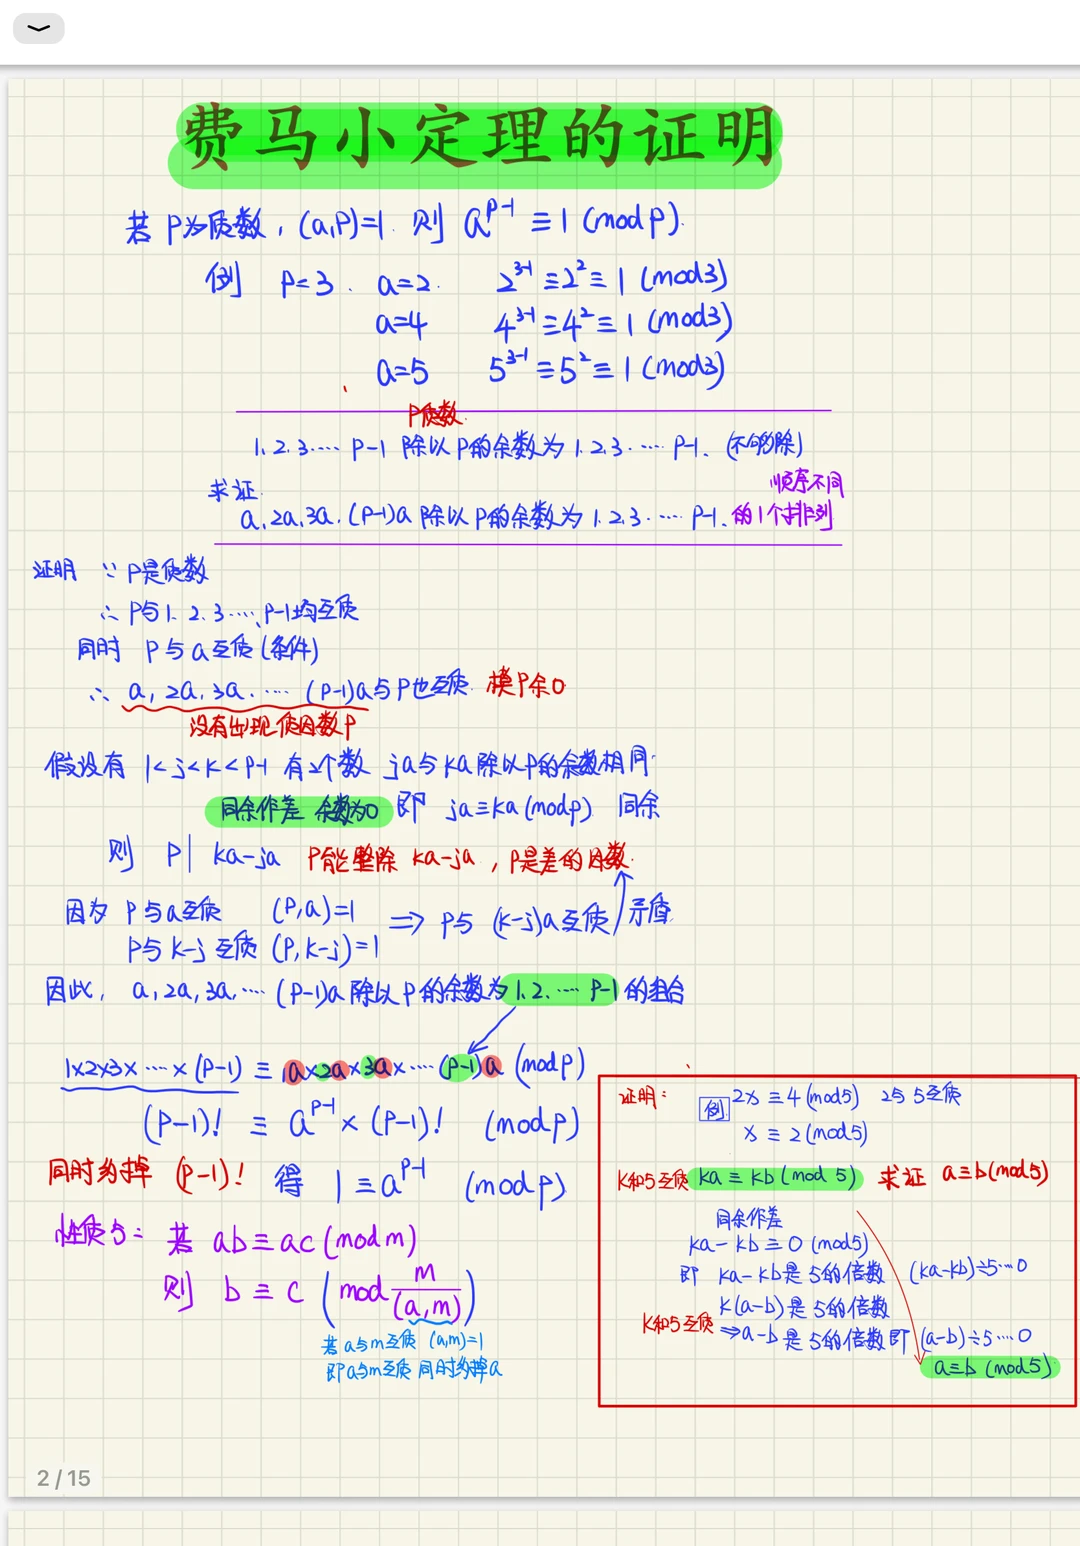 费马小定理的证明
若 P为质数, (a,P)=1. 则 a^{P-1} ≡ 1 (mod p).
例 P=3. a=2. 2^{3-1} ≡ 2^2 ≡ 1 (mod3)
a=4 4^{3-1} ≡ 4^2 ≡ 1 (mod3)
a=5 5^{3-1} ≡ 5^2 ≡ 1 (mod3)
P质数.
1.2.3.… P-1 除以P的余数为 1.2.3.… P-1. (不够除)
求证.
顺序不同
a.2a.3a.(P-1)a 除以P的余数为 1.2.3.… P-1. 的1个排列
证明 ∵ P是质数
∴ P与1.2.3…、P-1均互质
同时 P与a互质(条件)
∴ a, 2a, 3a.… (P-1)a与P也互质. 模P余0
没有出现质因数P
假设有 1<j<k<P-1 有2个数 ja与ka除以P的余数相同
同余作差 余数为0 即 ja≡ka(modp) 同余
则 P| ka-ja P能整除 ka-ja , P是差的因数.
因为 P与a互质 (P,a)=1 ⇒ P与 (k-j)a互质 矛盾
P与k-j互质 (P,k-j)=1
因此, a,2a,3a,… (P-1)a 除以P的余数为1.2.… P-1 的组合
1×2×3×…×(P-1) ≡ 1a×2a×3a×…(P-1)a (modp)
(P-1)! ≡ a^{P-1}×(P-1)! (modp)
同时约掉 (P-1)! 得 1≡a^{P-1} (modp)
性质5: 若 ab≡ac(modm)
则 b≡c (mod m/(a,m))
若a与m互质 (a,m)=1
即a与m互质 同时约掉a
证明: 例 2x≡4(mod5) 2与5互质
x≡2(mod5)
K和5互质 ka≡kb(mod 5) 求证 a≡b(mod5)
同余作差
ka-kb≡0(mod5)
即 ka-kb是5的倍数 (ka-kb)÷5…0
k(a-b)是5的倍数
K和5互质 ⇒a-b是5的倍数即 (a-b)÷5…0
a≡b (mod5)
2 / 15